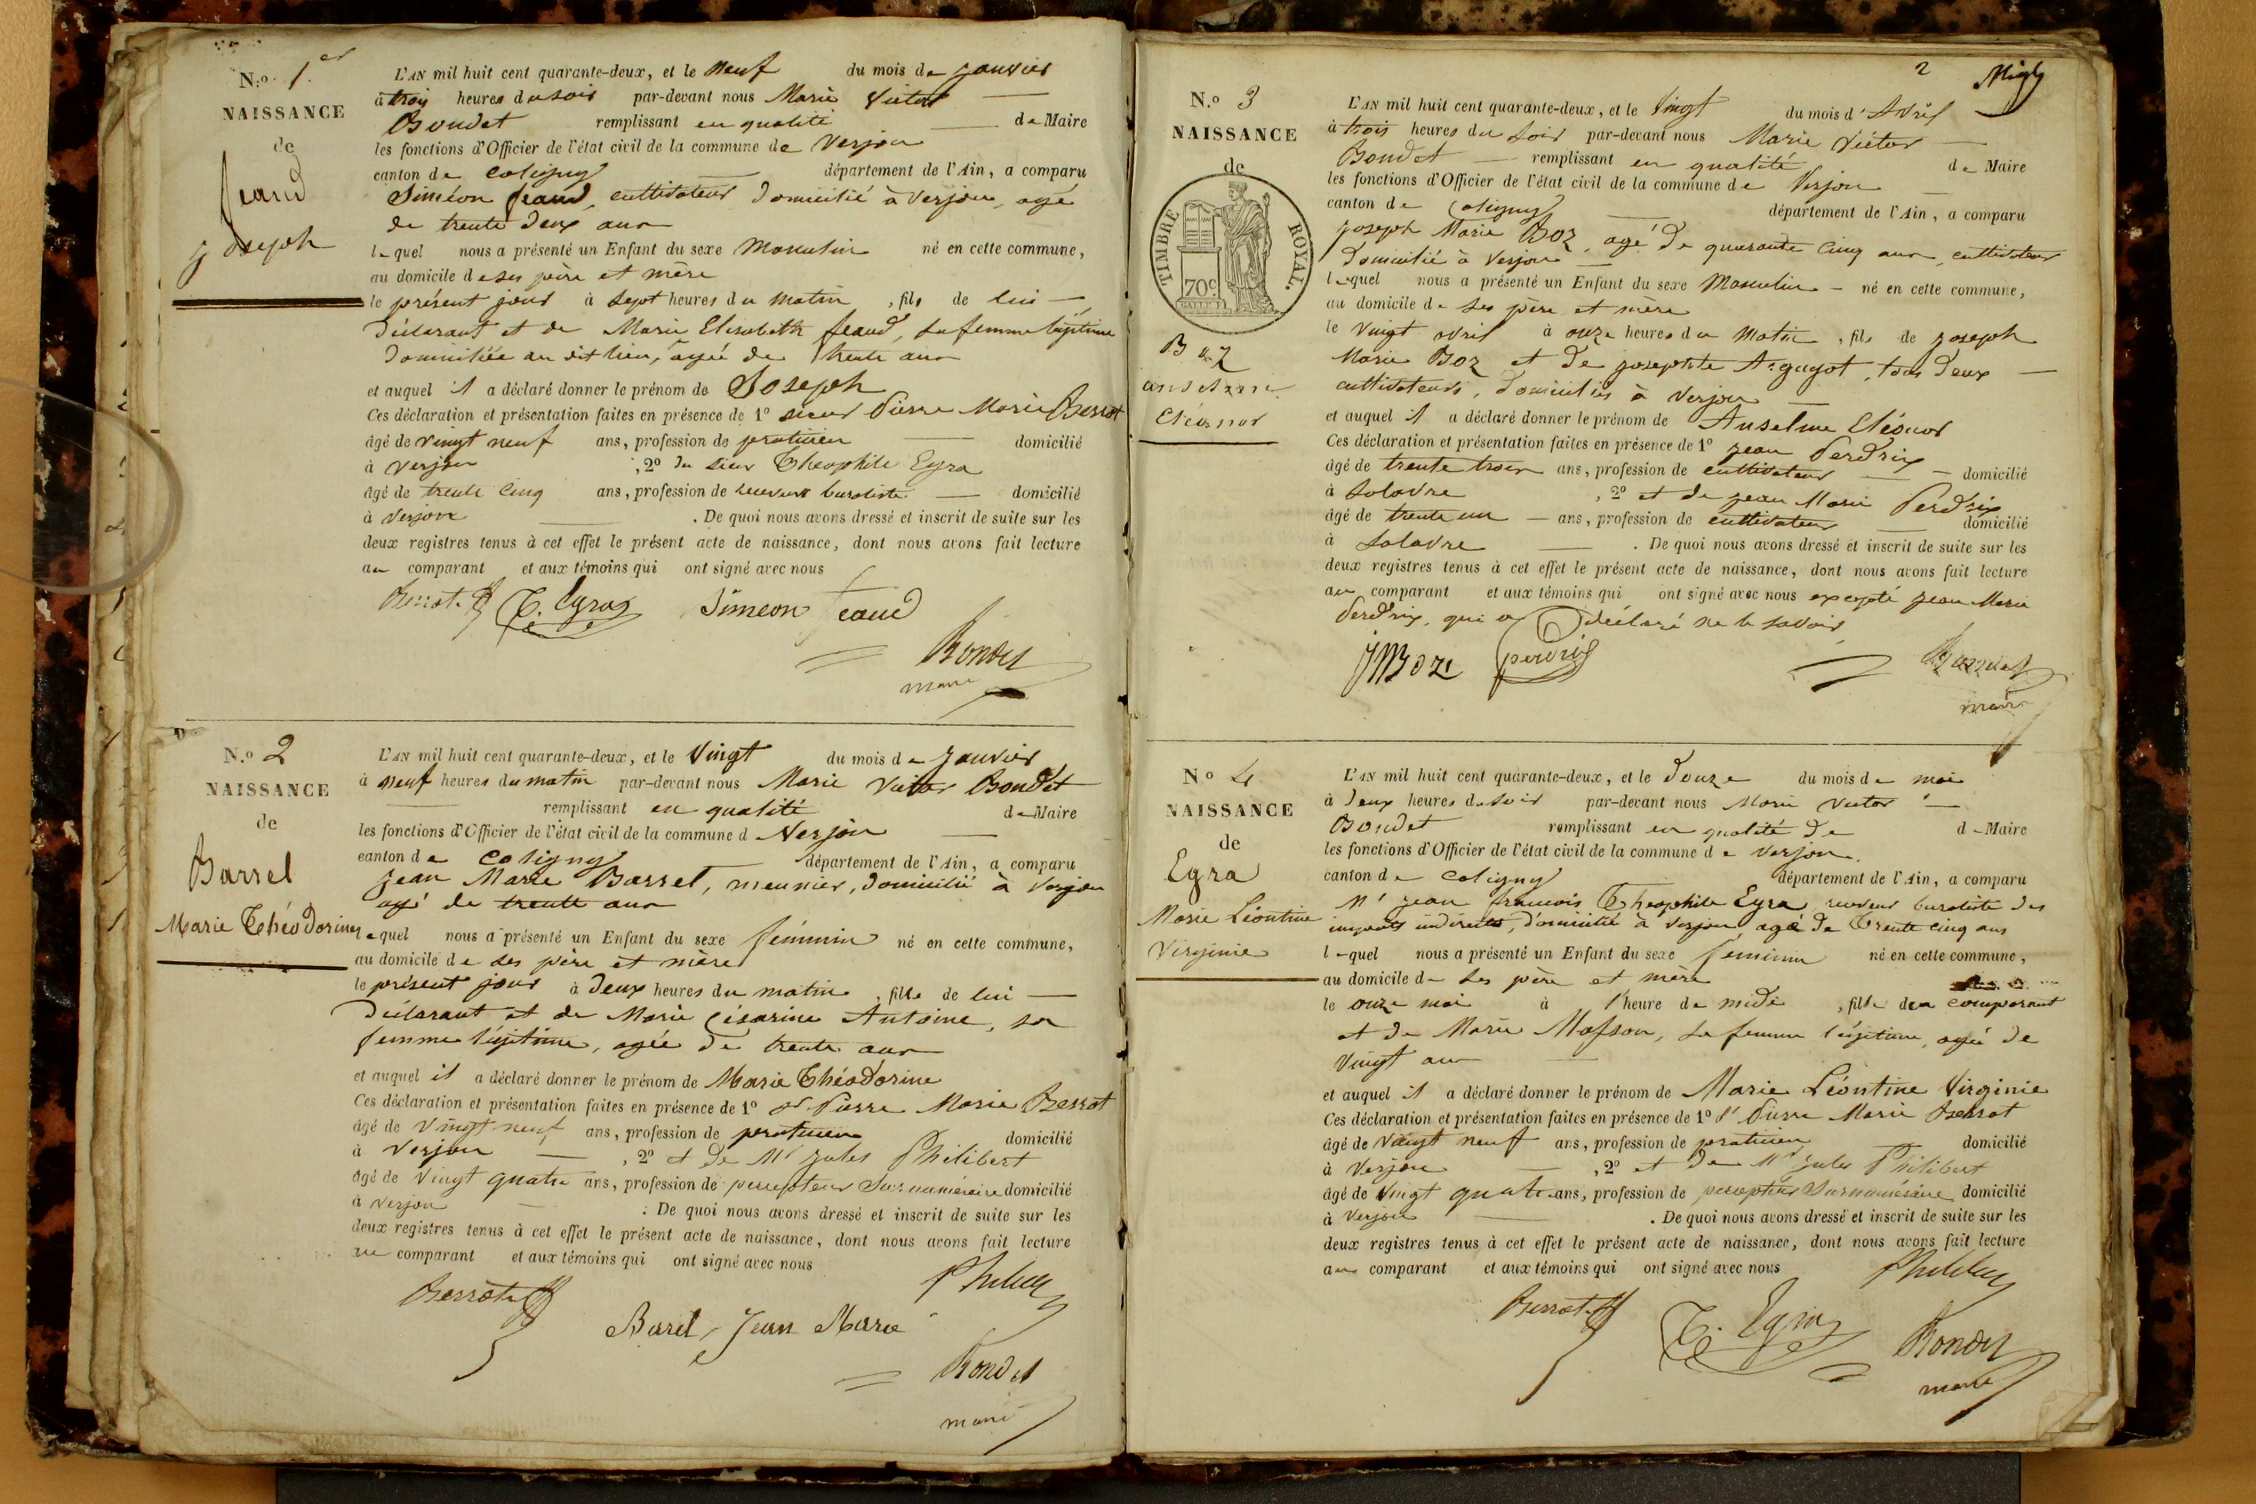 N.o 1.er
NAISSANCE
de
Jeand
Joseph
L'AN mil huit cent quarante-deux, et le neuf du mois de janvier
à trois heures du soir par-devant nous Marie Victor
Bondet remplissant en qualité de Maire
les fonctions d'Officier de l'état civil de la commune de Verjon
canton de Coligny département de l'Ain, a comparu
Siméon Jeand, cultivateur domicilié à Verjon, agé
de trente deux ans
lequel nous a présenté un Enfant du sexe Masculin né en cette commune,
au domicile de ses père et mère
le présent jour à sept heures du matin, fils de lui
Déclarant et de Marie Elisabeth Jeand, sa femme légitime
domiciliée au dit lieu, agée de trente ans
et auquel il a déclaré donner le prénom de Joseph
Ces déclaration et présentation faites en présence de 1º sieur Pierre Marie Berrot
âgé de vingt neuf ans, profession de praticien domicilié
à Verjon, 2º du sieur Théophile Eyra
âgé de trente cinq ans, profession de receveur buraliste domicilié
à Verjon. De quoi nous avons dressé et inscrit de suite sur les
deux registres tenus à cet effet le présent acte de naissance, dont nous avons fait lecture
au comparant et aux témoins qui ont signé avec nous
Berrot T. Eyra Siméon Jeand
Bondet
maire
N.o 2
NAISSANCE
de
Barrel
Marie Théodorine
L'AN mil huit cent quarante-deux, et le Vingt du mois de janvier
à neuf heures du matin par-devant nous Marie Victor Bondet
remplissant en qualité de Maire
les fonctions d'Officier de l'état civil de la commune de Verjon
canton de Coligny département de l'Ain, a comparu
Jean Marie Barrel, meunier, domicilié à Verjon
agé de trente ans
lequel nous a présenté un Enfant du sexe féminin né en cette commune,
au domicile de ses père et mère
le présent jour à deux heures du matin, fille de lui
Déclarant et de Marie Césarine Antoine, sa
femme légitime, agée de trente ans
et auquel il a déclaré donner le prénom de Marie Théodorine
Ces déclaration et présentation faites en présence de 1º sr Pierre Marie Berrot
âgé de vingt neuf ans, profession de praticien domicilié
à Verjon, 2º et de Mr Jules Philibert
âgé de vingt quatre ans, profession de percepteur surnuméraire domicilié
à Verjon. De quoi nous avons dressé et inscrit de suite sur les
deux registres tenus à cet effet le présent acte de naissance, dont nous avons fait lecture
au comparant et aux témoins qui ont signé avec nous
Berrot Philibert
Barel Jean Marie
Bondet
maire
2
N.o 3
NAISSANCE
de
TIMBRE ROYAL.
70c.
Boz
anselme
Eléonor
L'AN mil huit cent quarante-deux, et le Vingt du mois d'Avril
à trois heures du soir par-devant nous Marie Victor
Bondet remplissant en qualité de Maire
les fonctions d'Officier de l'état civil de la commune de Verjon
canton de Coligny département de l'Ain, a comparu
Joseph Marie Boz, agé de quarante cinq ans, cultivateur
domicilié à Verjon
lequel nous a présenté un Enfant du sexe Masculin né en cette commune,
au domicile de ses père et mère
le vingt avril à onze heures du matin, fils de Joseph
Marie Boz et de Josephte Arguyot, tous deux
cultivateurs, domiciliés à Verjon
et auquel il a déclaré donner le prénom de Anselme Eléonor
Ces déclaration et présentation faites en présence de 1º Jean Perdrix
âgé de trente trois ans, profession de cultivateur domicilié
à Salavre, 2º et de Jean Marie Perdrix
âgé de trente un ans, profession de cultivateur domicilié
à Salavre. De quoi nous avons dressé et inscrit de suite sur les
deux registres tenus à cet effet le présent acte de naissance, dont nous avons fait lecture
au comparant et aux témoins qui ont signé avec nous excepté Jean Marie
Perdrix, qui a déclaré ne le savoir
JM Boz perdrix Bondet
maire
No 4
NAISSANCE
de
Eyra
Marie Léontine
Virginie
L'AN mil huit cent quarante-deux, et le douze du mois de mai
à deux heures du soir par-devant nous Marie Victor
Bondet remplissant en qualité de de Maire
les fonctions d'Officier de l'état civil de la commune de Verjon
canton de Coligny département de l'Ain, a comparu
Mr Jean francois Théophile Eyra, receveur buraliste des
impots indirects, domicilié à Verjon agé de Trente cinq ans
lequel nous a présenté un Enfant du sexe féminin né en cette commune,
au domicile de ses père et mère
le onze mai à l'heure de midi, fille du comparant
et de Marie Masson, sa femme légitime, agée de
vingt ans
et auquel il a déclaré donner le prénom de Marie Léontine Virginie
Ces déclaration et présentation faites en présence de 1º sr Pierre Marie Berrot
âgé de vingt neuf ans, profession de praticien domicilié
à Verjon, 2º et de Mr Jules Philibert
âgé de vingt quatre ans, profession de percepteur surnuméraire domicilié
à Verjon. De quoi nous avons dressé et inscrit de suite sur les
deux registres tenus à cet effet le présent acte de naissance, dont nous avons fait lecture
au comparant et aux témoins qui ont signé avec nous Philibert
Berrot T. Eyra Bondet
maire